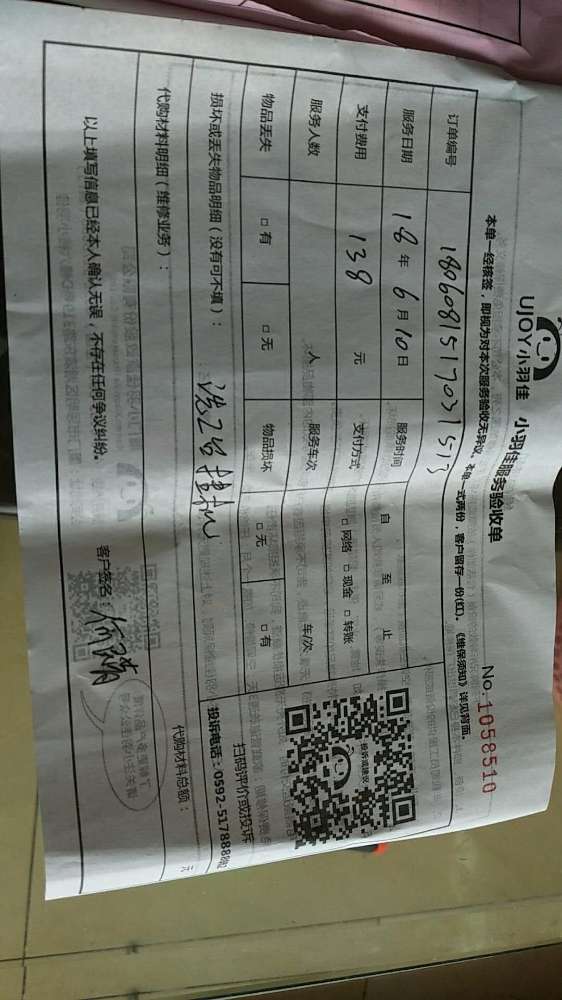 UJOY小羽佳 小羽佳服务验收单
No.1058510
本单一经核签，即视为对本次服务验收无异议。本单一式两份，客户留存一份(红)。《维保须知》详见背面。
订单编号 180608151703151
服务日期 18年6月10日 服务时间 自 至 止
支付费用 138 元 支付方式 □网络 □现金 □转账
服务人数 人 服务车次 车/次
物品丢失 □有 □无 物品损坏 □无 □有
投诉或建议
扫码评价或投诉
投诉电话：0592-5178888
损坏或丢失物品明细（没有可不填）：
代购材料明细（维修业务）：
代购材料总额： 元
以上填写信息已经本人确认无误，不存在任何争议纠纷。 客户签名：